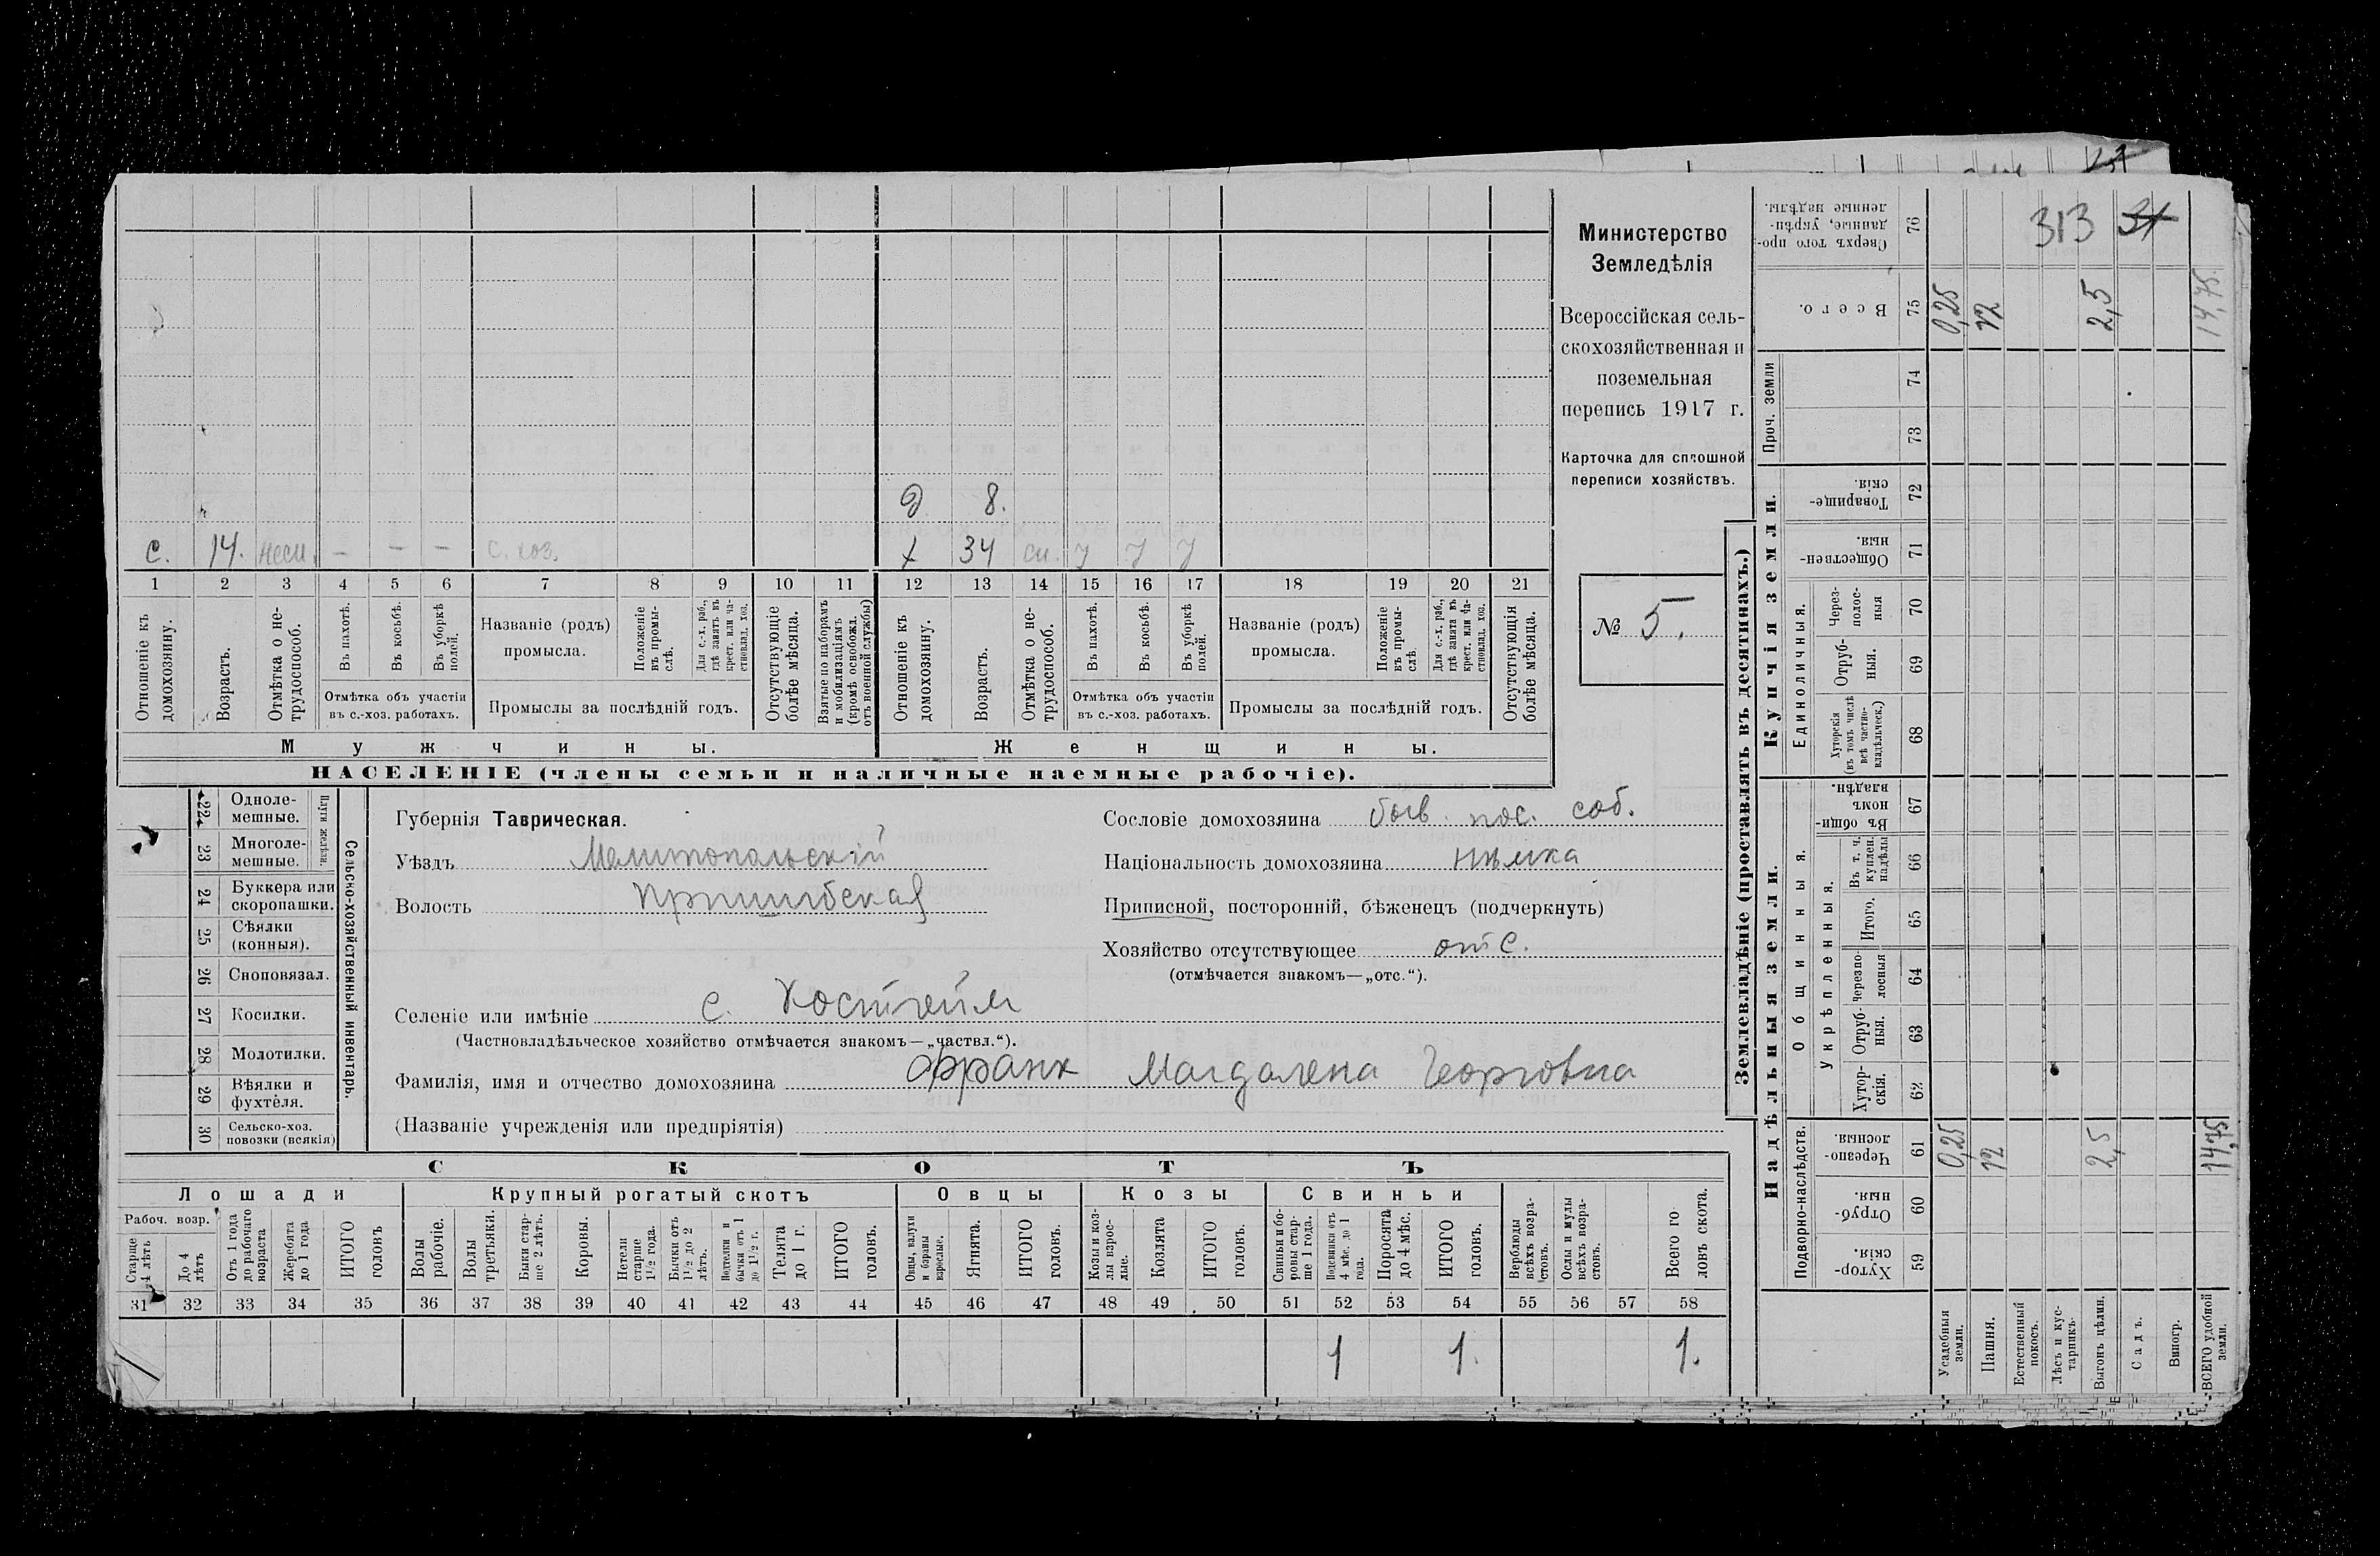 313 31
с. 14. с. хоз.
д 8.
х 34
1 2 3 4 5 6 7 8 9 10 11 12 13 14 15 16 17 18 19 20 21
Отношеніе къ домохозяину.
Возрастъ.
Отмѣтка о нетрудоспособ.
Въ пахотѣ.
Въ косьбѣ.
Въ уборкѣ полей.
Отмѣтка объ участіи въ с.-хоз. работахъ.
Названіе (родъ) промысла.
Положеніе въ промыслѣ.
Для с.-х. раб., гдѣ занятъ въ крест. или частновлад. хоз.
Промыслы за послѣдній годъ.
Отсутствующіе болѣе мѣсяца.
Взятые по наборамъ и мобилизаціямъ (кромѣ освобожд. отъ военной службы)
Отношеніе къ домохозяину.
Возрастъ.
Отмѣтка о нетрудоспособ.
Въ пахотѣ.
Въ косьбѣ.
Въ уборкѣ полей.
Отмѣтка объ участіи въ с.-хоз. работахъ.
Названіе (родъ) промысла.
Положеніе въ промыслѣ
Для с.-х. раб., гдѣ занята въ крест. или частновлад. хоз.
Промыслы за послѣдній годъ.
Отсутствующія болѣе мѣсяца.
Мужчины.
Женщины.
НАСЕЛЕНІЕ (члены семьи и наличные наемные рабочіе).
Министерство
Земледѣлія
Всероссійская сель-
скохозяйственная и
поземельная
перепись 1917 г.
Карточка для сплошной
переписи хозяйствъ.
№ 5.
Сельско-хозяйственный инвентарь.
Плуги желѣзн.
22 Однолемешные.
23 Многолемешные.
24 Буккера или скоропашки.
25 Сѣялки (конныя).
26 Сноповязал.
27 Косилки.
28 Молотилки.
29 Вѣялки и фухтеля.
30 Сельско-хоз. повозки (всякія)
Губернія Таврическая.
Уѣздъ Мелитопольскій
Волость Пришибская
Селеніе или имѣніе с. Костгейм
(Частновладѣльческое хозяйство отмѣчается знакомъ—„частвл.“).
Фамилія, имя и отчество домохозяина Франк Магдалена Георговна
(Названіе учрежденія или предпріятія)
Сословіе домохозяина быв. пос. соб.
Національность домохозяина нѣмка
Приписной, посторонній, бѣженецъ (подчеркнуть)
Хозяйство отсутствующее отс.
(отмѣчается знакомъ—„отс.“).
СКОТЪ
Лошади
Рабоч. возр.
Старше 4 лѣтъ
До 4 лѣтъ
Отъ 1 года до рабочаго возраста
Жеребята до 1 года
ИТОГО головъ
Крупный рогатый скотъ
Волы рабочіе.
Волы третьяки.
Быки старше 2 лѣтъ.
Коровы.
Нетели старше 1 1/2 года.
Бычки отъ 1 1/2 до 2 лѣтъ.
Подтелки и бычки отъ 1 до 1 1/2 г.
Телята до 1 г.
ИТОГО головъ.
Овцы
Овцы, валухи и бараны взрослые.
Ягнята.
ИТОГО головъ.
Козы
Козы и козлы взрослые.
Козлята
ИТОГО головъ.
Свиньи
Свиньи и боровы старше 1 года.
Подсвинки отъ 4 мѣс. до 1 года.
Поросята до 4 мѣс.
ИТОГО головъ.
Верблюды всѣхъ возрастовъ.
Ослы и мулы всѣхъ возрастовъ.
Всего головъ скота.
31 32 33 34 35 36 37 38 39 40 41 42 43 44 45 46 47 48 49 50 51 52 53 54 55 56 57 58
1 1. 1.
Землевладѣніе (проставлять въ десятинахъ.)
Сверхъ того проданные, укрѣпленные надѣлы. 76
Всего. 75 0,25 12 2,5 14,75
Проч. земли 74
73
Купчія земли.
Товарищескія. 72
Общественныя. 71
Единоличныя.
Черезполосныя 70
Отрубныя. 69
Хуторскія (въ томъ числѣ всѣ частновладѣльческ.) 68
Надѣльныя земли.
Общинныя.
Въ общинномъ владѣн. 67
Укрѣпленныя.
Въ т. ч. куплен. надѣлы 66
Итого. 65
Черезполосныя 64
Отрубныя. 63
Хуторскія. 62
Подворно-наслѣдств.
Черезполосныя. 61 0,25 12 2,5 14,75
Отрубныя. 60
Хуторскія. 59
Усадебныя земли.
Пашня.
Естественный покосъ.
Лѣсъ и кустарникъ.
Выгонъ цѣлин.
Садъ.
Виногр.
ВСЕГО удобной земли.